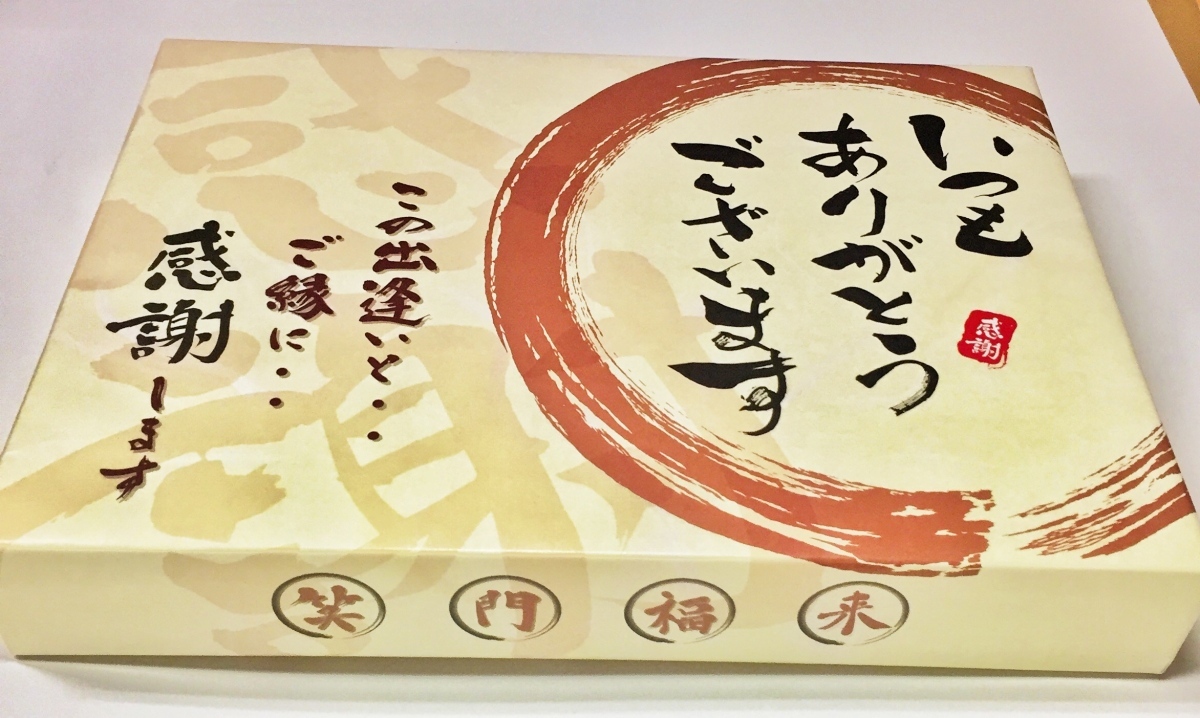 いつも
ありがとう
ございます
感謝
この出逢いと・・
ご縁に・・
感謝します
笑門福来